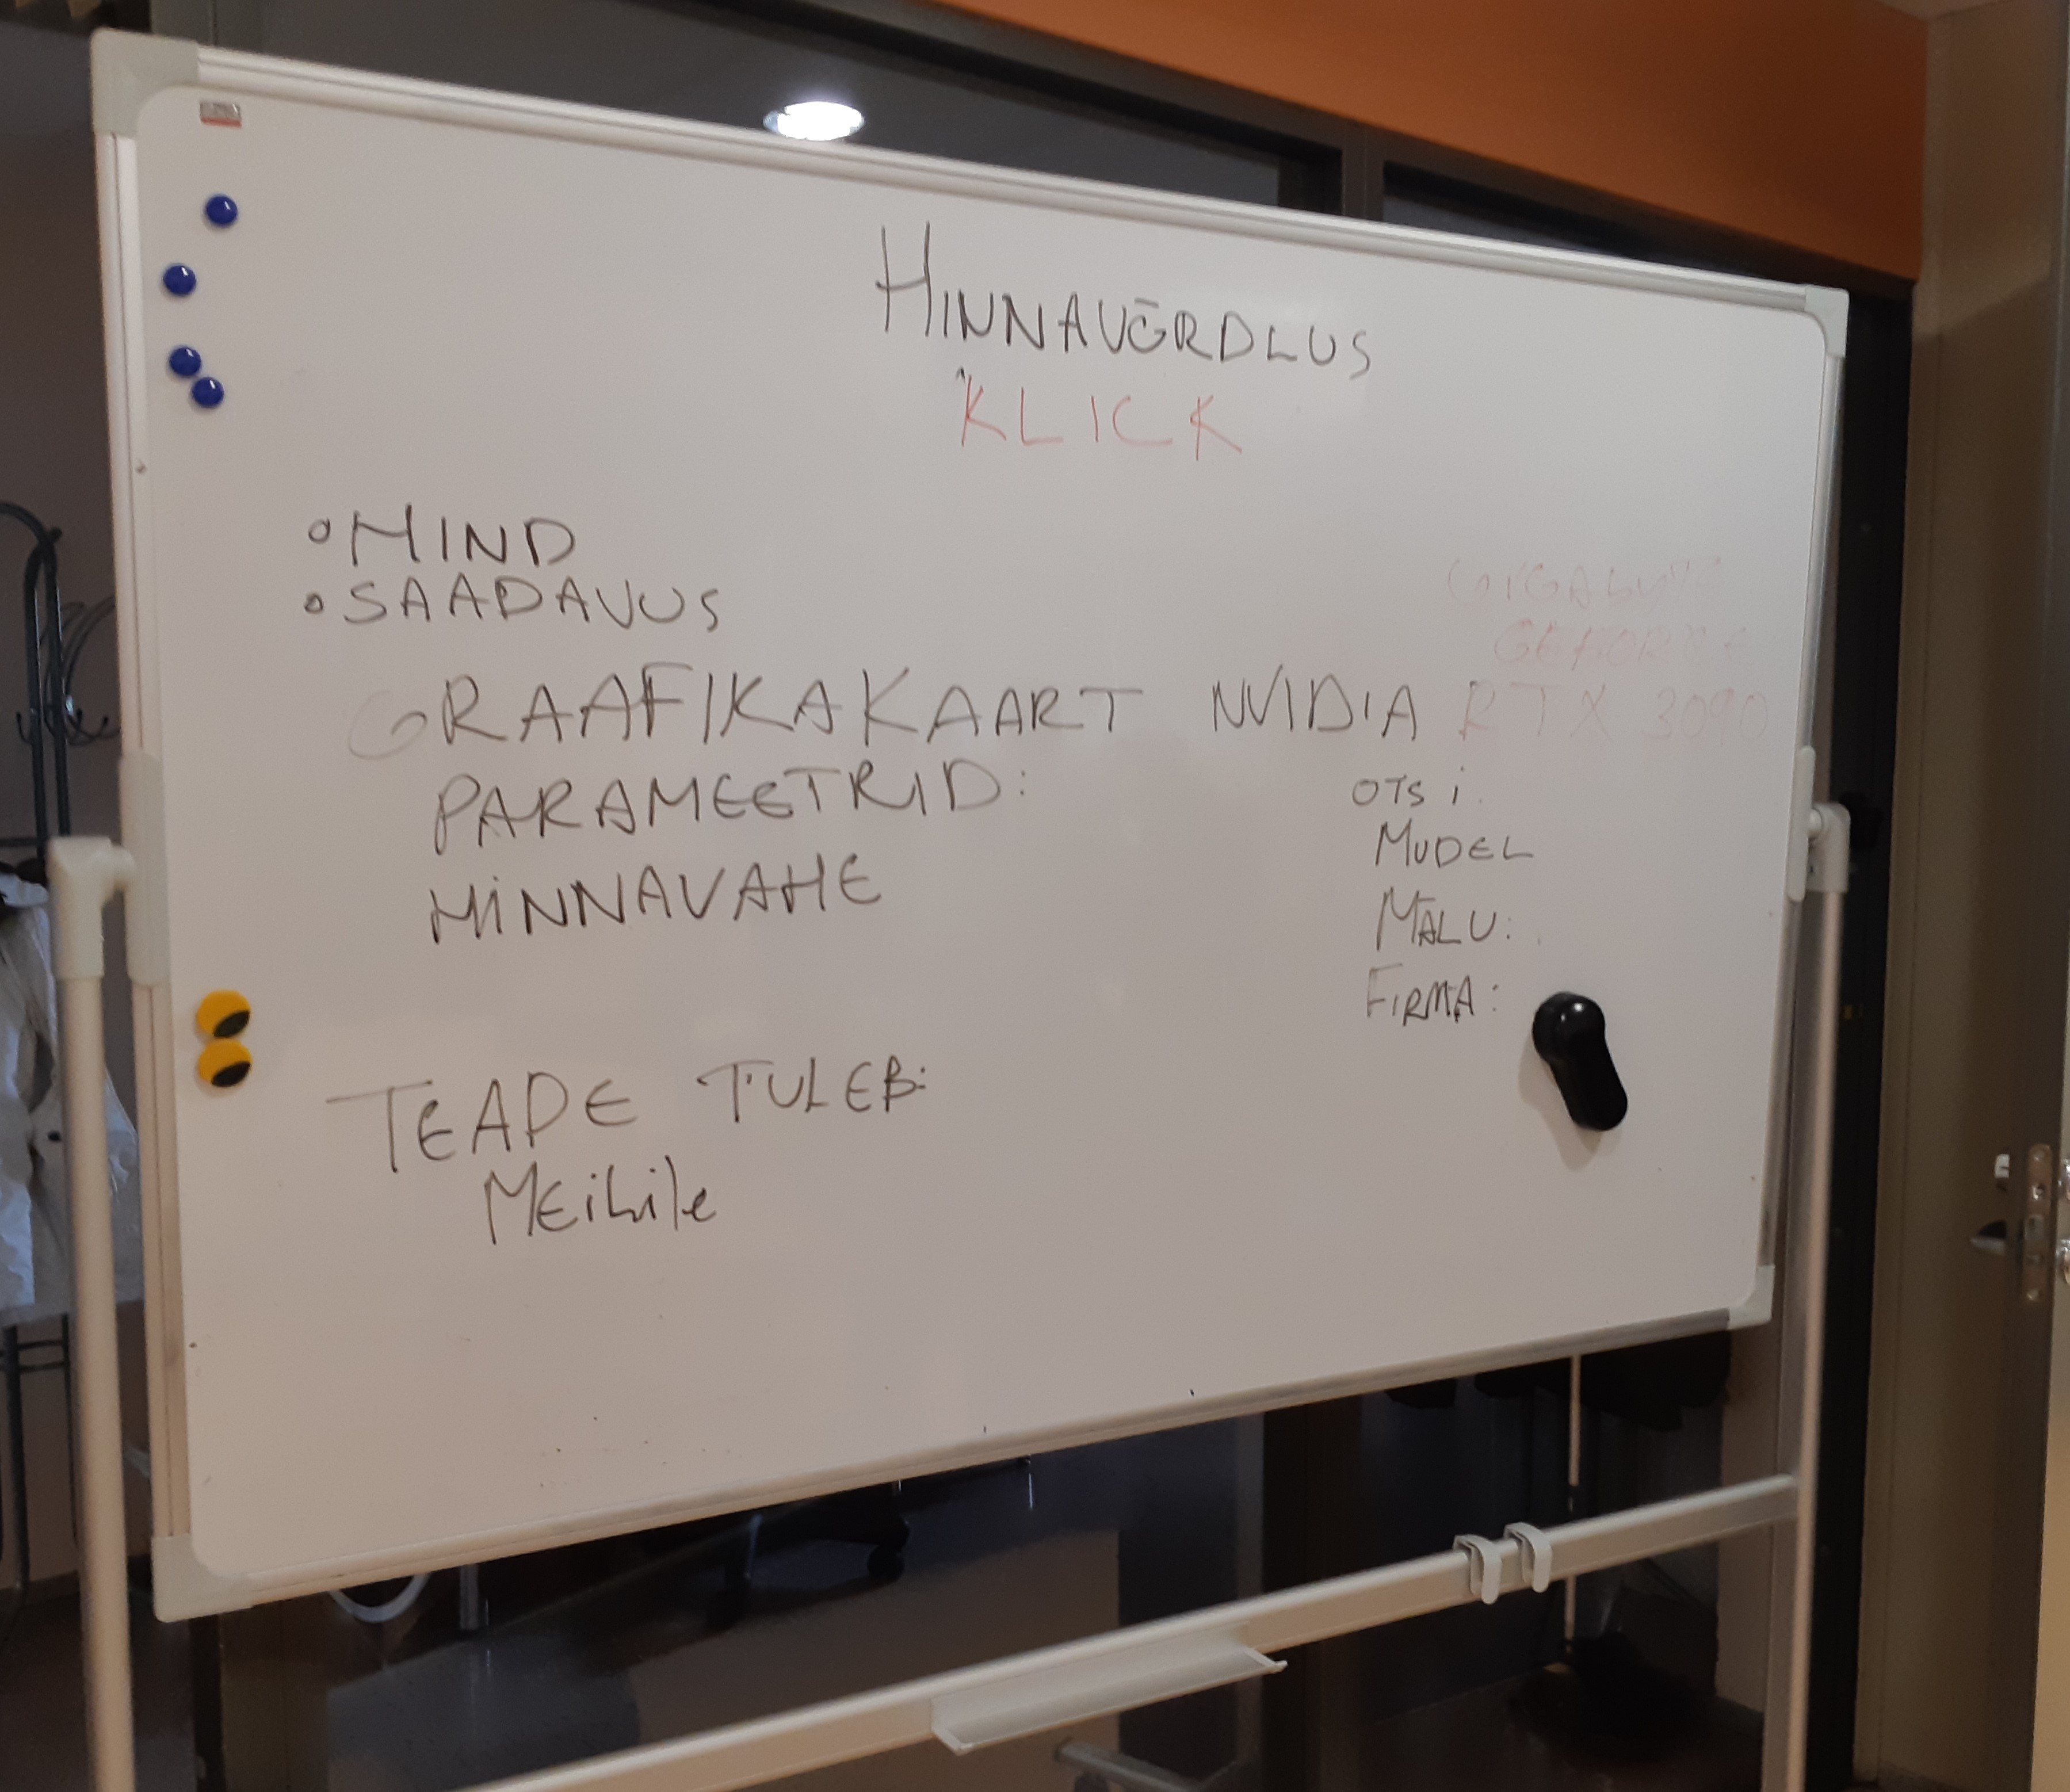 HINNAVÕRDLUS
KLICK
• HIND
• SAADAVUS
GIGABYTE
GEFORCE
GRAAFIKAKAART NVIDIA RTX 3090
PARAMEETRID:
HINNAVAHE
OTSI
MUDEL
MÄLU:
FIRMA:
TEADE TULEB:
MEiLile